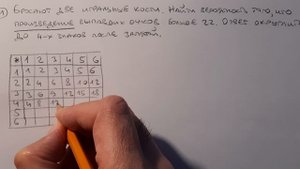 1) Бросают две игральные кости. Найти вероятность того, что
произведение выпавших очков более 22. Ответ округлить
до 4-х знаков после запятой.
* 1 2 3 4 5 6
1 1 2 3 4 5 6
2 2 4 6 8 10 12
3 3 6 9 12 15 18
4 4 8 12
5
6